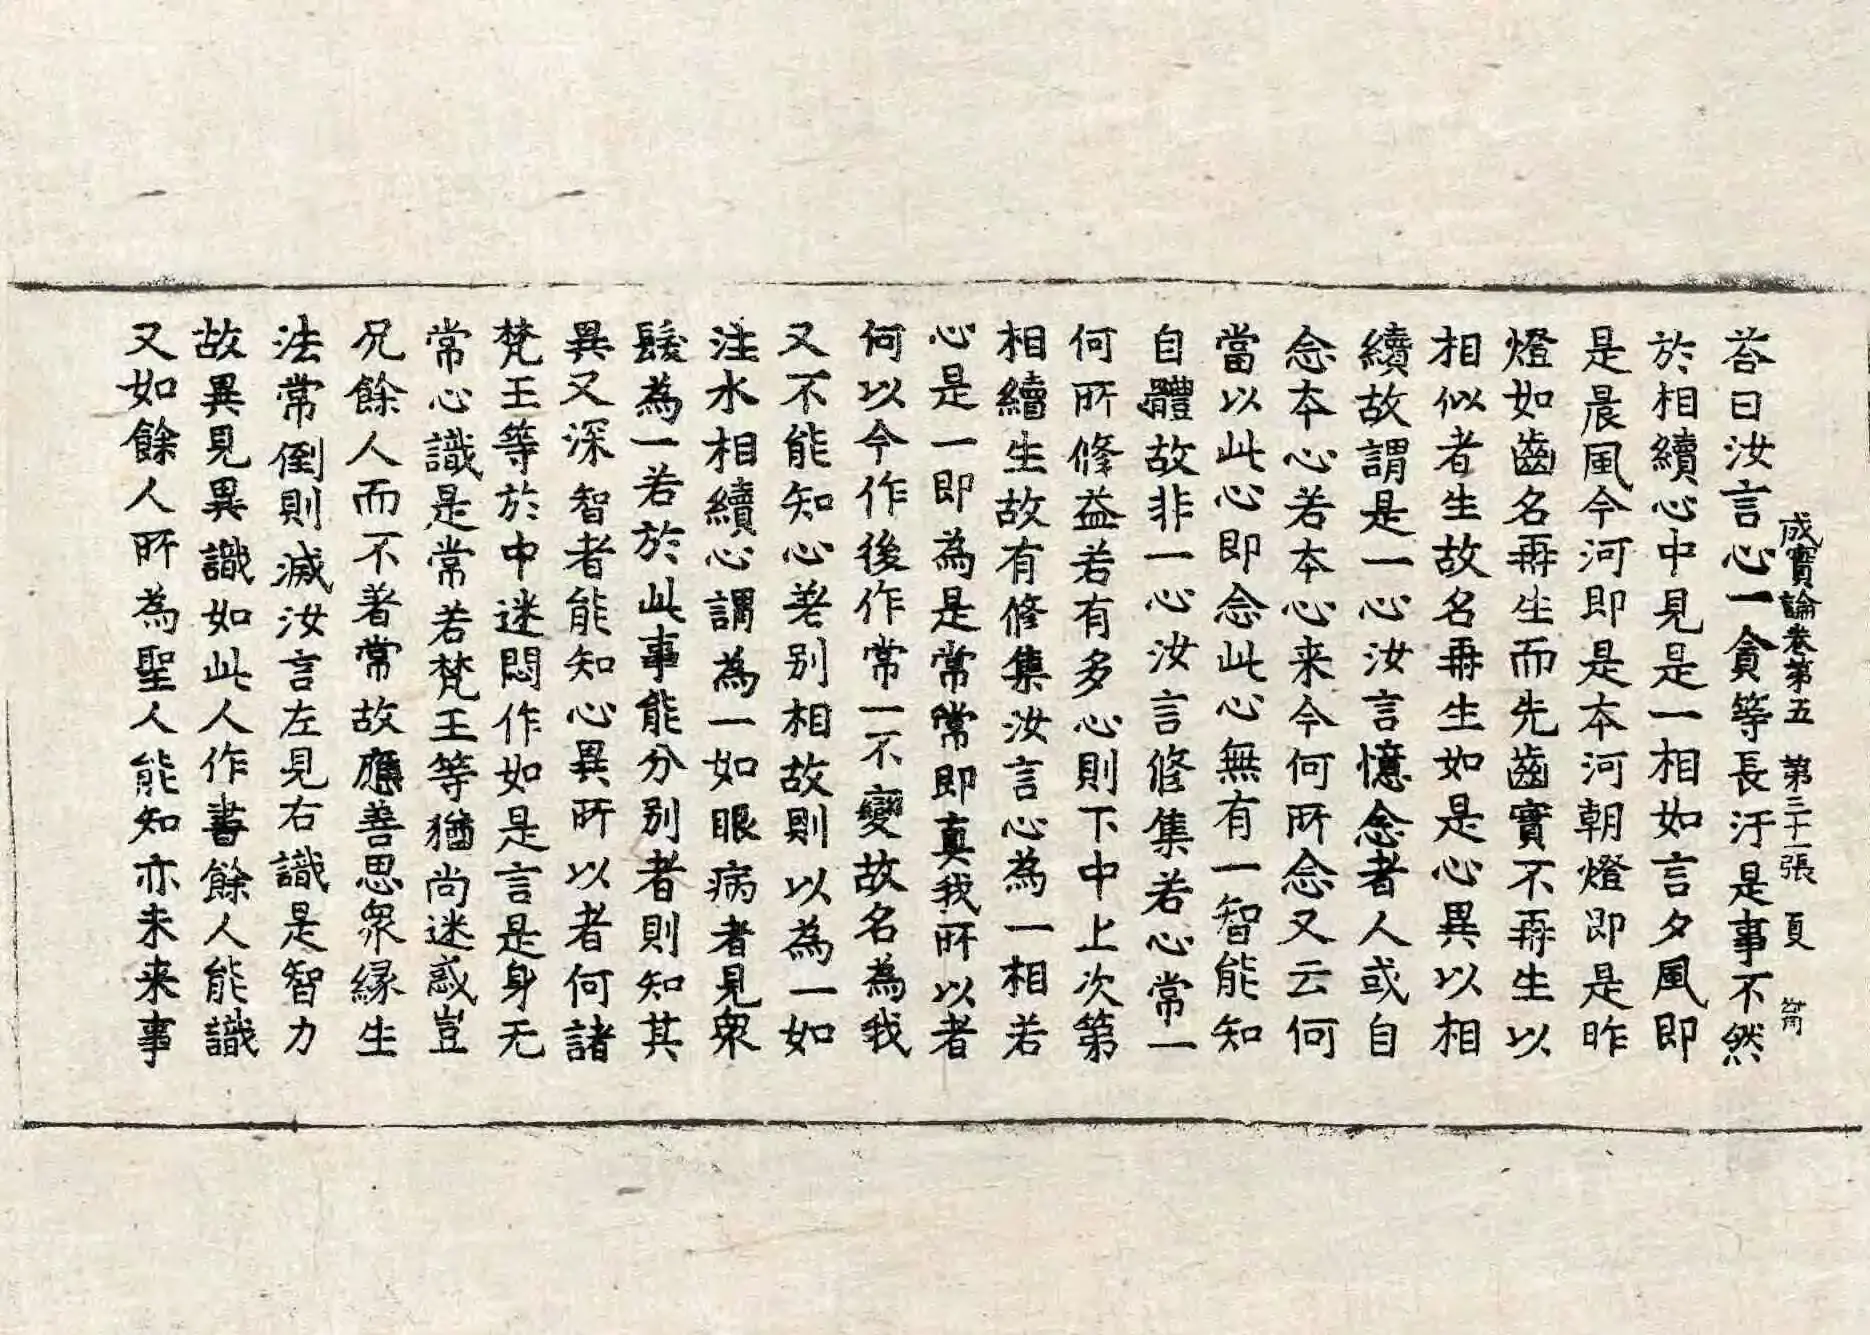 成實論卷第五　第三十一張　夏
荅曰汝言心一貪等長汙是事不然
於相續心中見是一相如言夕風即
是晨風今河即是本河朝燈即是昨
燈如齒名再生而先齒實不再生以
相似者生故名再生如是心異以相
續故謂是一心汝言憶念者人或自
念本心若本心来今何所念又云何
當以此心即念此心無有一智能知
自體故非一心汝言修集若心常一
何所修益若有多心則下中上次第
相續生故有修集汝言心為一相若
心是一即為是常常即真我所以者
何以今作後作常一不變故名為我
又不能知心差别相故則以為一如
注水相續心謂為一如眼病者見衆
髮為一若於此事能分别者則知其
異又深智者能知心異所以者何諸
梵王等於中迷悶作如是言是身无
常心識是常若梵王等猶尚迷惑豈
况餘人而不著常故應善思衆緣生
法常倒則滅汝言左見右識是智力
故異見異識如此人作書餘人能識
又如餘人所為聖人能知亦未来事